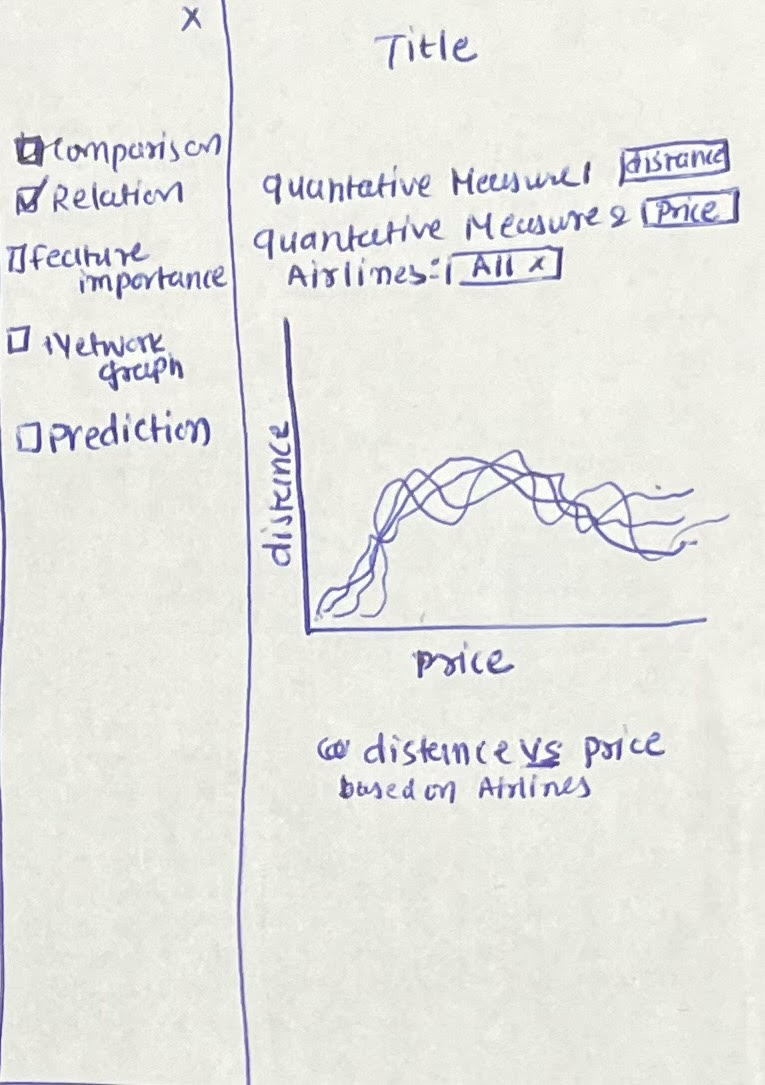 X
Title
Comparison
Relation
feature
importance
Network
graph
prediction
quantative Measure1 distance
quantative Measure 2 Price
Airlines: All x
distance
price
distance vs price
based on Airlines